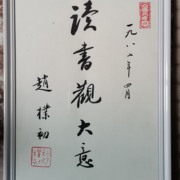 一九八二年四月
讀書觀大意
趙樸初